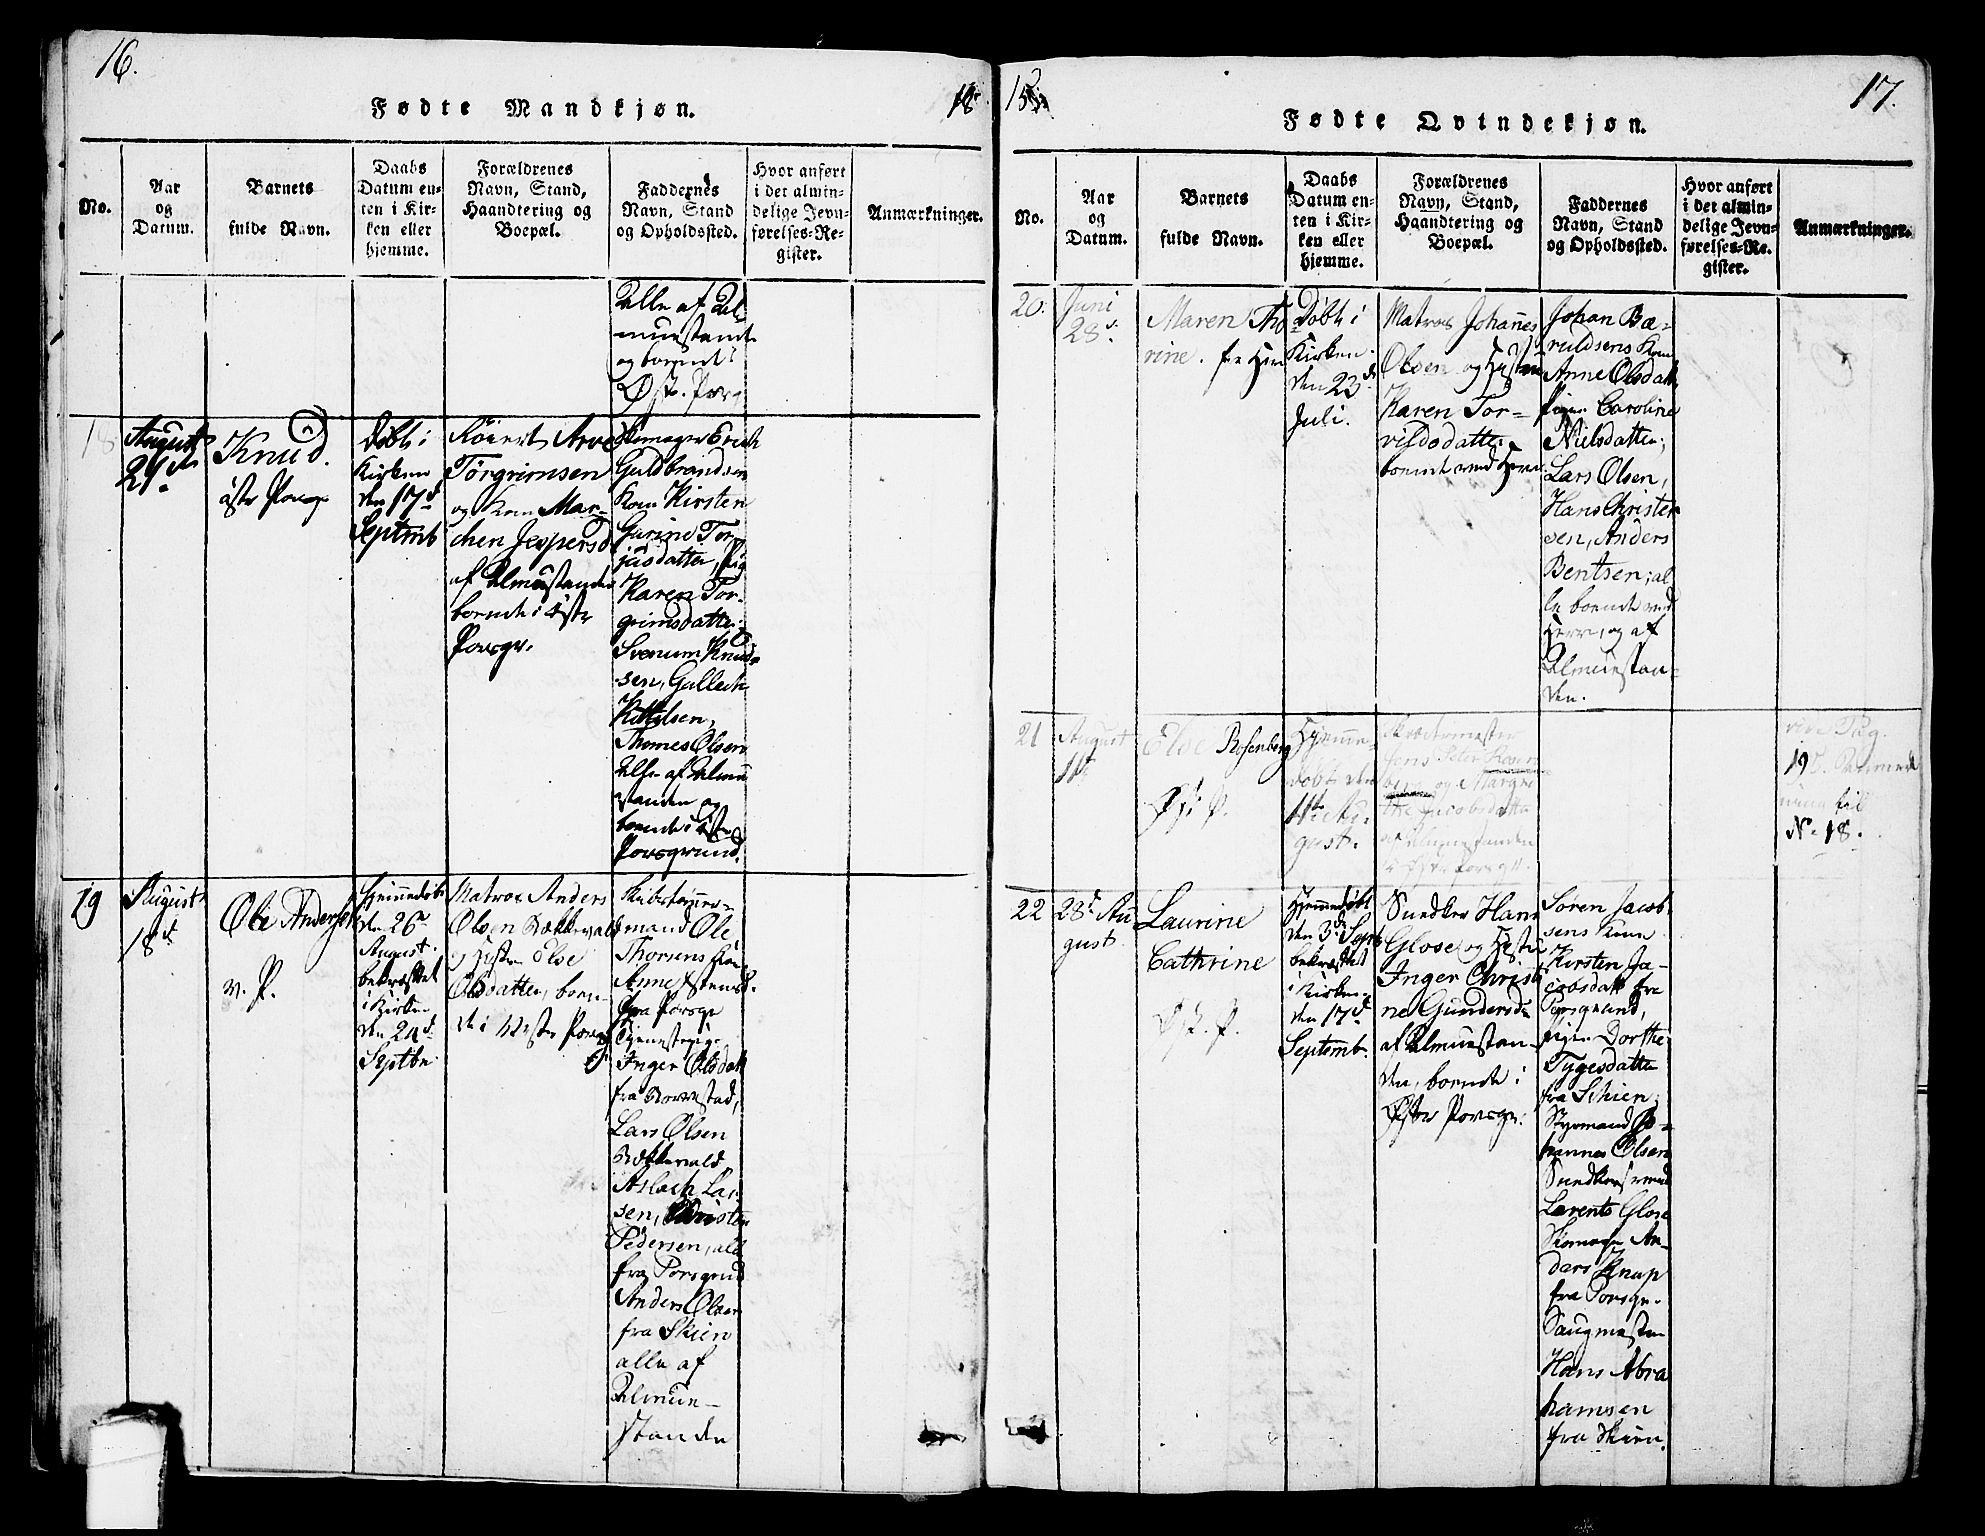 16.
Fødte Mandkjøn.
No.
Aar
og
Datum.
Barnets
fulde Navn.
Daabs
Datum en-
ten i Kir-
ken eller
hjemme.
Forældrenes
Navn, Stand,
Haandtering og
Boepæl.
Faddernes
Navn, Stand
og Opholdssted.
Hvor anført
i det almin-
delige Jevn-
førelses-Re-
gister.
Anmærkninger.
Alle af Al-
muestanden
og boende i
Øst. Porsg
18
August
21de
Knud.
øster Porsg
døbt i
Kirken
den 17d
Septemb
Arve
Torgrimsen
og Kone Mar-
chen Jespersd
af Almuestanden
boende i øster
Porsgr.
Skomager Erich
Guldbrandsen
Kone Kirsten
Gurine Tor-
jusdatter, Pig
Karen Tor-
grimsdatter
Svenum Knud-
sen, Gullech
Kittilsen,
Thomes Olsen
Alle af Almue
standen og
boende i øster
Porsgrund.
19
August
18d
Ole Andersen
v. P.
Hjemmedøbt
den 26de
August
bekræftet
i Kirken
den 24d
Septbr.
Matros Anders
Olsen Bækkevald
og Hustru Else
Olsdatter, boen-
de i Wester Porsg
Skibstømmer-
mand Ole
Thorsens Kone
Anne Istensd.
fra Porsgr
Tjenestepige
Inger Olsdatt
fra Borrestad,
Lars Olsen
Bækkevald
Aslach Lar-
sen, Christen
Pedersen, alle
fra Porsgrund
Anders Olsen
fra Skien
alle af
Almue-
standen
17.
Fødte Qvindekjøn.
No.
Aar
og
Datum.
Barnets
fulde Navn.
Daabs
Datum en-
ten i Kir-
ken eller
hjemme.
Forældrenes
Navn, Stand,
Haandtering og
Boepæl.
Faddernes
Navn, Stand
og Opholdssted.
Hvor anført
i det almin-
delige Jevn-
førelses-Re-
gister.
Anmærkninger.
20.
Juni
28d.
Maren Tho
rine.
Døbt i
Kirken
den 23d
Juli.
Matros Johannes
Olsen og Hustru
Karen Tor-
visdsdatter
boende ved Herre
Johan Bæ-
ruldsens Kone
Anne Olsdatt
Pigen Caroline
Nielsdatter,
Lars Olsen,
Hans Christen-
sen, Anders
Bentsen, al-
le boende ved
Herre, og af
Almuestan-
den.
21
August
11te
Else Rosenberg
Øst. P.
Hjemme-
døbt den
11te Au-
gust.
Skrædermester
Jens Peter Rosen
berg og Margre
the Jacobsdatter
af Almuestanden
i Øster Porsgr.
vide Pag.
195. Anmærk
ning til
No 18.
22
28d Au-
gust.
Laurine
Cathrine
Øst. P.
Hjemmedøbt
den 3d Septb
bekræftet
i Kirken
den 17d
Septemb.
Snedker Hans
Glose og Hustru
Inger Christi
ne Gundersd
af Almuestan-
den, boende i
Øster Porsgr.
Søren Jacob-
sens Kone
Kirsten Ja-
cobsdatt fra
Porsgrund,
pigen Dorthe
Tygesdatter
fra Schien;
Styrmand Jo-
hannes Olsen
Snedkersvend
Larents Glose
Skomager An-
ders Knup
fra Porsgr.
Saugmester
Hans Abra
hamsen
fra Skien.